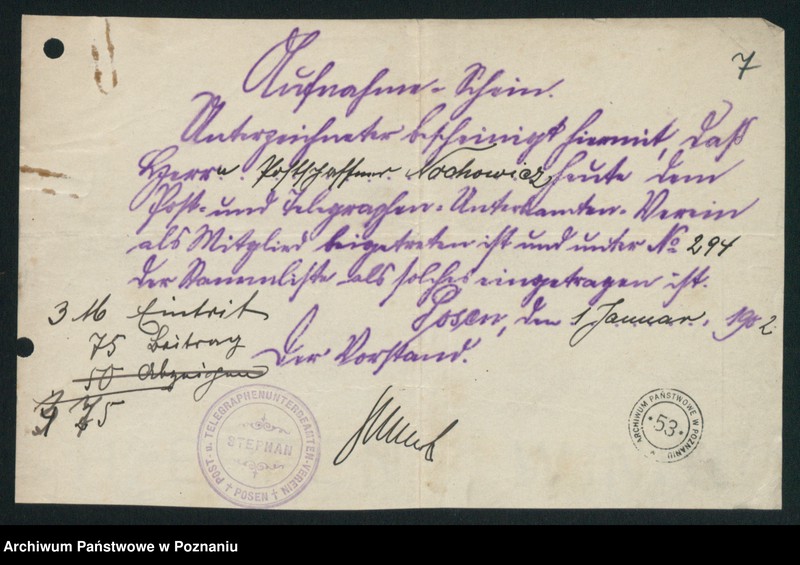 7
Aufnahme-Schein.
Unterzeichneter bescheinigt hiermit, daß
Herrn Postschaffner Nochowicz, heute dem
Post- und Telegraphen-Unterbeamten-Verein
als Mitglied beigetreten ist und unter No 294
der Stammliste als solches eingetragen ist.
Posen, den 1 Januar. 1902.
Der Vorstand.
3 M Eintrit
75 Beitrag
50 Abzeichen
75
POST- u. TELEGRAPHENUNTERBEAMTEN-VEREIN
STEPHAN
† POSEN †
ARCHIWUM PAŃSTWOWE W POZNANIU
53
Archiwum Państwowe w Poznaniu